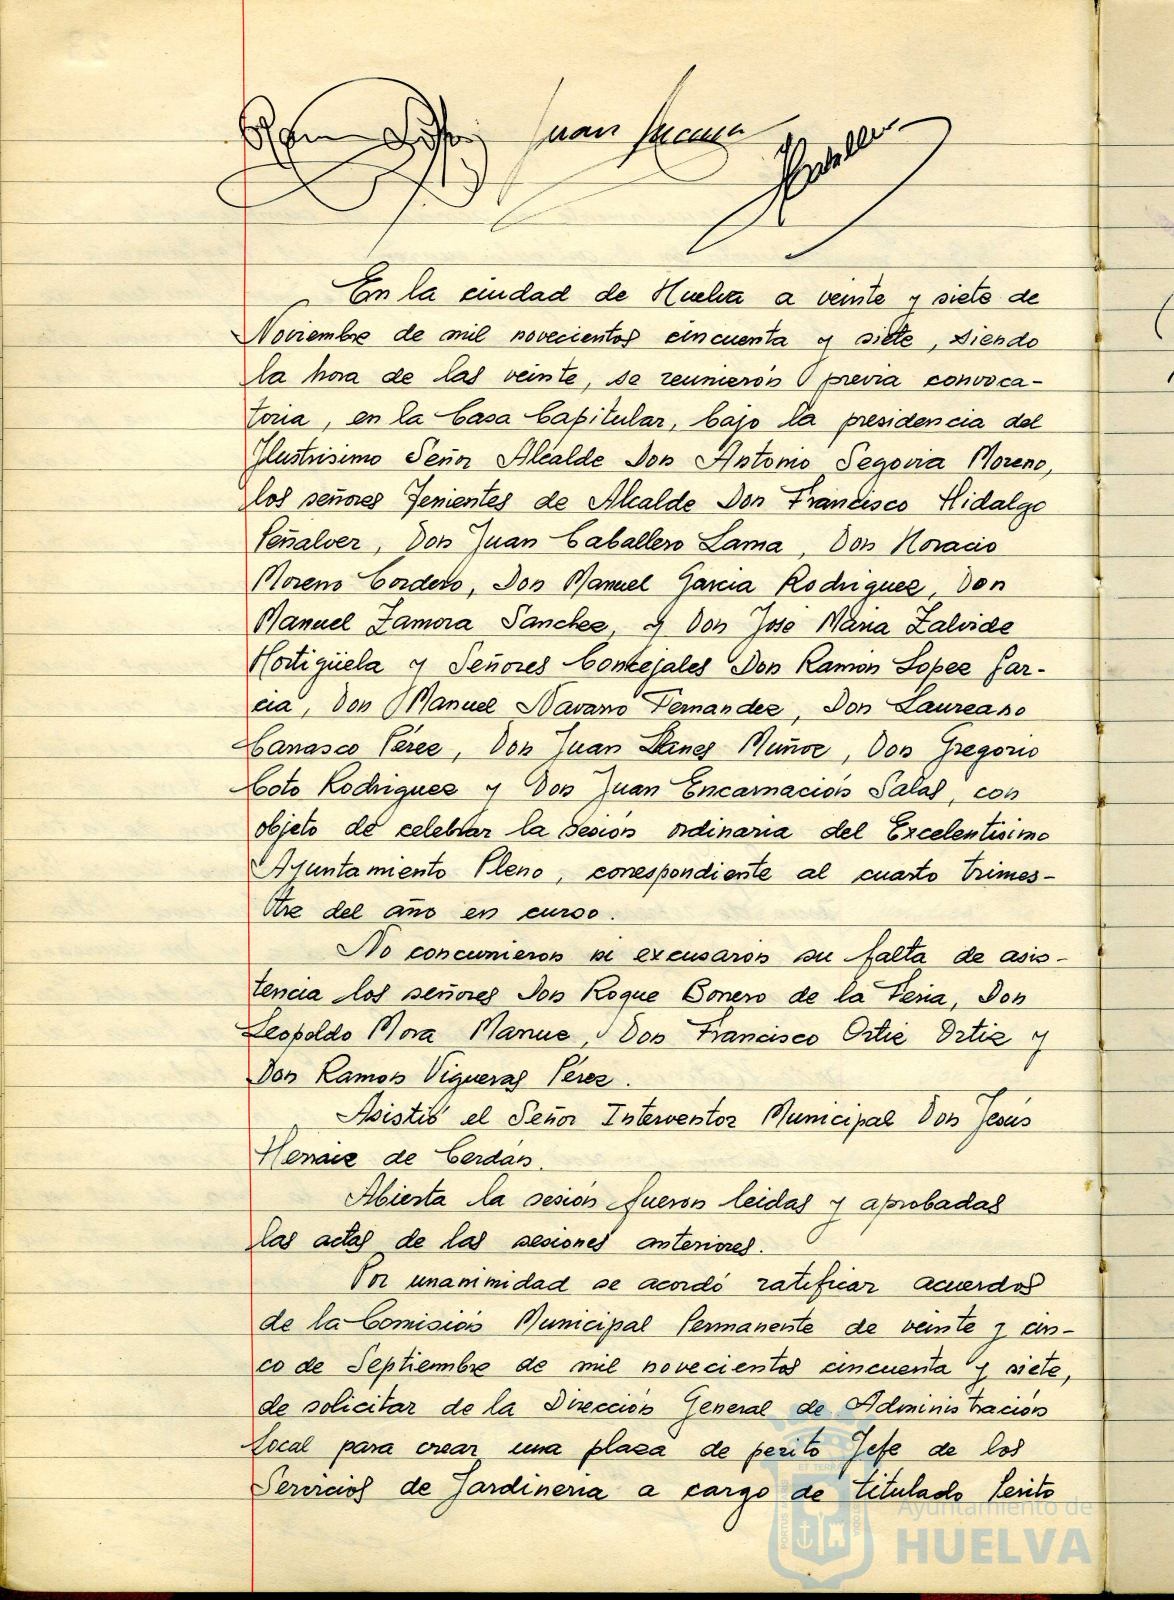 Juan
Caballero
En la ciudad de Huelva a veinte y siete de
Noviembre de mil novecientos cincuenta y siete, siendo
la hora de las veinte, se reunieron previa convoca-
toria, en la Casa Capitular, bajo la presidencia del
Ilustrisimo Señor Alcalde Don Antonio Segovia Moreno,
los señores Tenientes de Alcalde Don Francisco Hidalgo
Peñalver, Don Juan Caballero Lama, Don Horacio
Moreno Cordero, Don Manuel Garcia Rodriguez, Don
Manuel Zamora Sanchez, y Don José Maria Zalvide
Hortigüela y Señores Concejales Don Ramón Lopez Gar-
cia, Don Manuel Navarro Fernandez, Don Laureano
Carrasco Pérez, Don Juan Llanes Muñoz, Don Gregorio
Coto Rodriguez y Don Juan Encarnación Salas, con
objeto de celebrar la sesión ordinaria del Excelentisimo
Ayuntamiento Pleno, correspondiente al cuarto trimes-
tre del año en curso.
No concurrieron ni excusaron su falta de asis-
tencia los señores Don Roque Borrero de la Feria, Don
Leopoldo Mora Don Francisco Ortiz Ortiz y
Don Ramon Vigueras Pérez.
Asistió el Señor Interventor Municipal Don Jesús
de Cerdán.
Abierta la sesión fueron leidas y aprobadas
las actas de las sesiones anteriores.
Por unanimidad se acordó ratificar acuerdos
de la Comisión Municipal Permanente de veinte y cin-
co de Septiembre de mil novecientos cincuenta y siete,
de solicitar de la Dirección General de Administración
Local para crear una plaza de perito Jefe de los
Servicios de Jardineria a cargo de titulado Perito
Ayuntamiento de
HUELVA